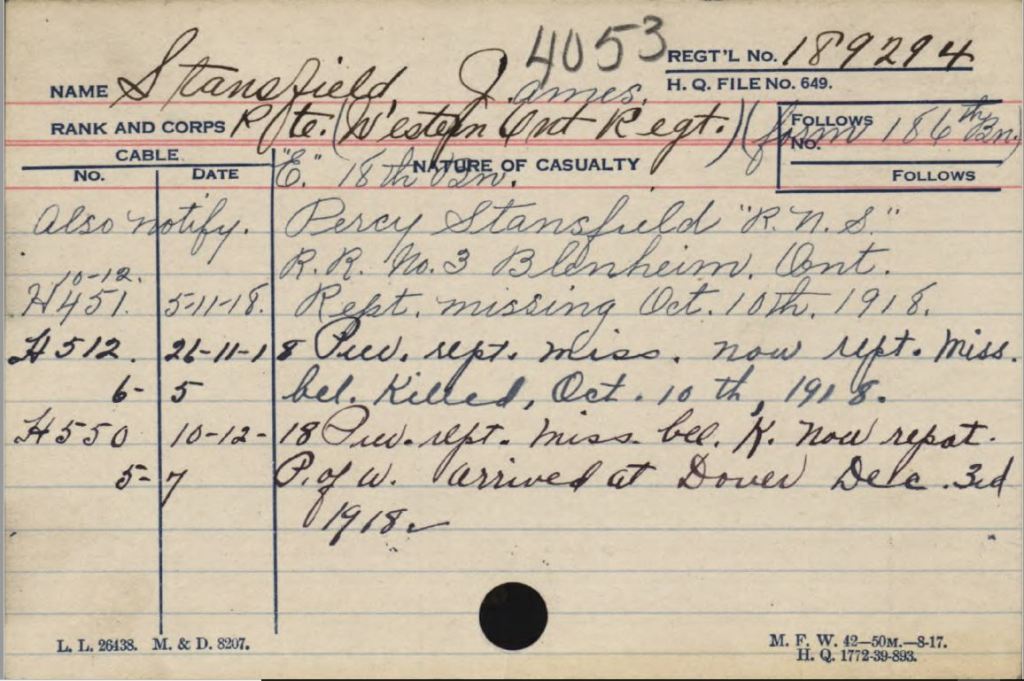 4053
REGT'L No. 189294
NAME Stansfield James.
H. Q. FILE No. 649.
RANK AND CORPS Pte. (Western Ont Regt.) (form 186th Bn)
FOLLOWS
No.
CABLE
NATURE OF CASUALTY
No. DATE
"E." 18th Bn.
FOLLOWS
Also notify. Percy Stansfield "R.N.S."
R.R. No. 3 Blenheim, Ont.
10-12.
H451. 5-11-18. Rept. missing Oct. 10th, 1918.
H512. 26-11-18 Prev. rept. miss. now rept. Miss.
6-5 bel. Killed, Oct. 10th, 1918.
H550 10-12-18 Prev. rept. miss. bel. K. now repat.
5-7 P. of W. arrived at Dover Dec. 3rd
1918.
L. L. 26438. M. & D. 8207.
M. F. W. 42—50M.—8-17.
H. Q. 1772-39-893.